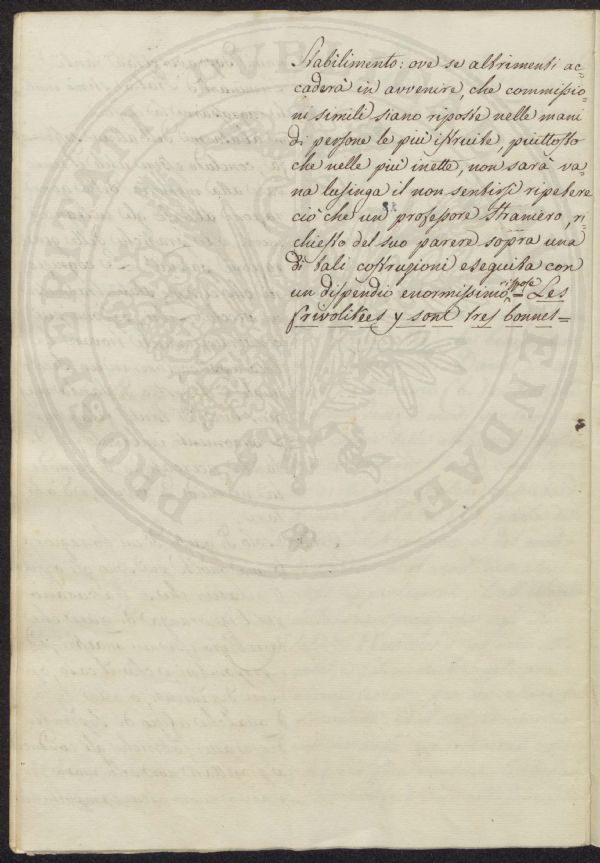 Stabilimento: ove se altrimenti ac-
caderà in avvenire, che commissio-
ni simili siano riposte nelle mani
di persone le più istruite, piuttosto
che nelle più inette, non sarà va-
na lusinga il non sentirsi ripetere
ciò che un professore straniero, ri-
chiesto del suo parere sopra una
di tali costruzioni eseguita con
un dispendio enormissimo, rispose = Les
frivolitées y sont tres bonnes =